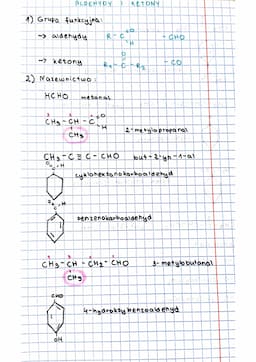 ALDEHYDY I KETONY
1) Grupa funkcyjna:
→ aldehydy R - C O H - CHO
→ ketony R₁ - C - R₂ O - CO
2) Nazewnictwo:
HCHO metanal
CH₃ - CH - C O H
CH₃ 2-metylopropanal
CH₃ - C ≡ C - CHO but-2-yn-1-al
O C - H
cykloheksanokarboaldehyd
O C - H
benzenokarboaldehyd
CH₃ - CH - CH₂ - CHO 3-metylobutanal
CH₃
CHO
4-hydroksybenzoaldehyd
OH